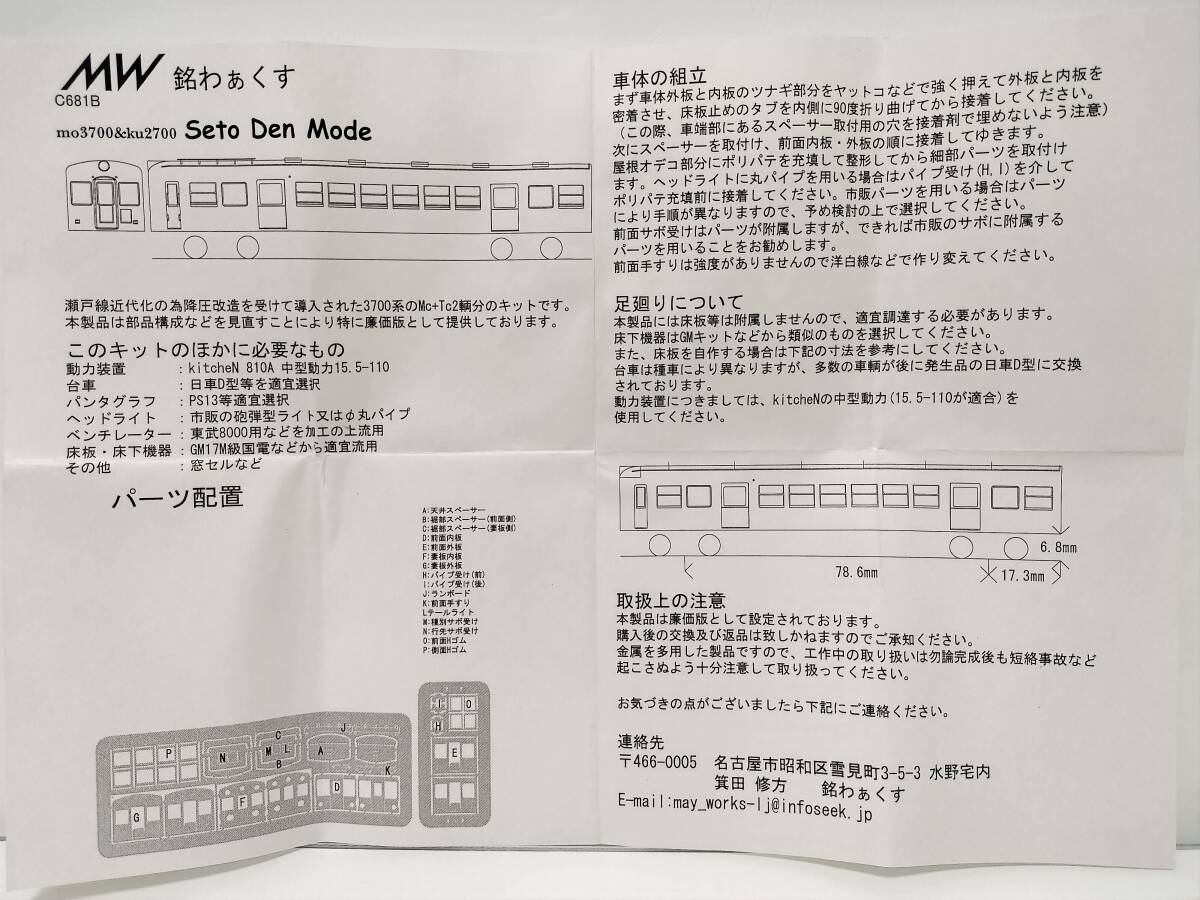 MW 銘わぁくす
C681B
mo3700&ku2700 Seto Den Mode
瀬戸線近代化の為降圧改造を受けて導入された3700系のMc+Tc2輌分のキットです。
本製品は部品構成などを見直すことにより特に廉価版として提供しております。
このキットのほかに必要なもの
動力装置 :kitcheN 810A 中型動力15.5-110
台車 :日車D型等を適宜選択
パンタグラフ :PS13等適宜選択
ヘッドライト :市販の砲弾型ライト又はφ丸パイプ
ベンチレーター :東武8000用などを加工の上流用
床板・床下機器 :GM17M級国電などから適宜流用
その他 :窓セルなど
パーツ配置
A:天井スペーサー
B:裾部スペーサー(前面側)
C:裾部スペーサー(妻板側)
D:前面内板
E:前面外板
F:妻板内板
G:妻板外板
H:パイプ受け(前)
I:パイプ受け(後)
J:ランボード
K:前面手すり
Lテールライト
M:種別サボ受け
N:行先サボ受け
O:前面Hゴム
P:側面Hゴム
P N C M L B A J K
G F D
I O
H
E
車体の組立
まず車体外板と内板のツナギ部分をヤットコなどで強く押えて外板と内板を
密着させ、床板止めのタブを内側に90度折り曲げてから接着してください。
(この際、車端部にあるスペーサー取付用の穴を接着剤で埋めないよう注意)
次にスペーサーを取付け、前面内板・外板の順に接着してゆきます。
屋根オデコ部分にポリパテを充填して整形してから細部パーツを取付け
ます。ヘッドライトに丸パイプを用いる場合はパイプ受け(H,I)を介して
ポリパテ充填前に接着してください。市販パーツを用いる場合はパーツ
により手順が異なりますので、予め検討の上で選択してください。
前面サボ受けはパーツが附属しますが、できれば市販のサボに附属する
パーツを用いることをお勧めします。
前面手すりは強度がありませんので洋白線などで作り変えてください。
足廻りについて
本製品には床板等は附属しませんので、適宜調達する必要があります。
床下機器はGMキットなどから類似のものを選択してください。
また、床板を自作する場合は下記の寸法を参考にしてください。
台車は種車により異なりますが、多数の車輌が後に発生品の日車D型に交換
されております。
動力装置につきましては、kitcheNの中型動力(15.5-110が適合)を
使用してください。
6.8mm
78.6mm
17.3mm
取扱上の注意
本製品は廉価版として設定されております。
購入後の交換及び返品は致しかねますのでご承知ください。
金属を多用した製品ですので、工作中の取り扱いは勿論完成後も短絡事故など
起こさぬよう十分注意して取り扱ってください。
お気づきの点がございましたら下記にご連絡ください。
連絡先
〒466-0005 名古屋市昭和区雪見町3-5-3 水野宅内
箕田 修方 銘わぁくす
E-mail:may_works-lj@infoseek.jp